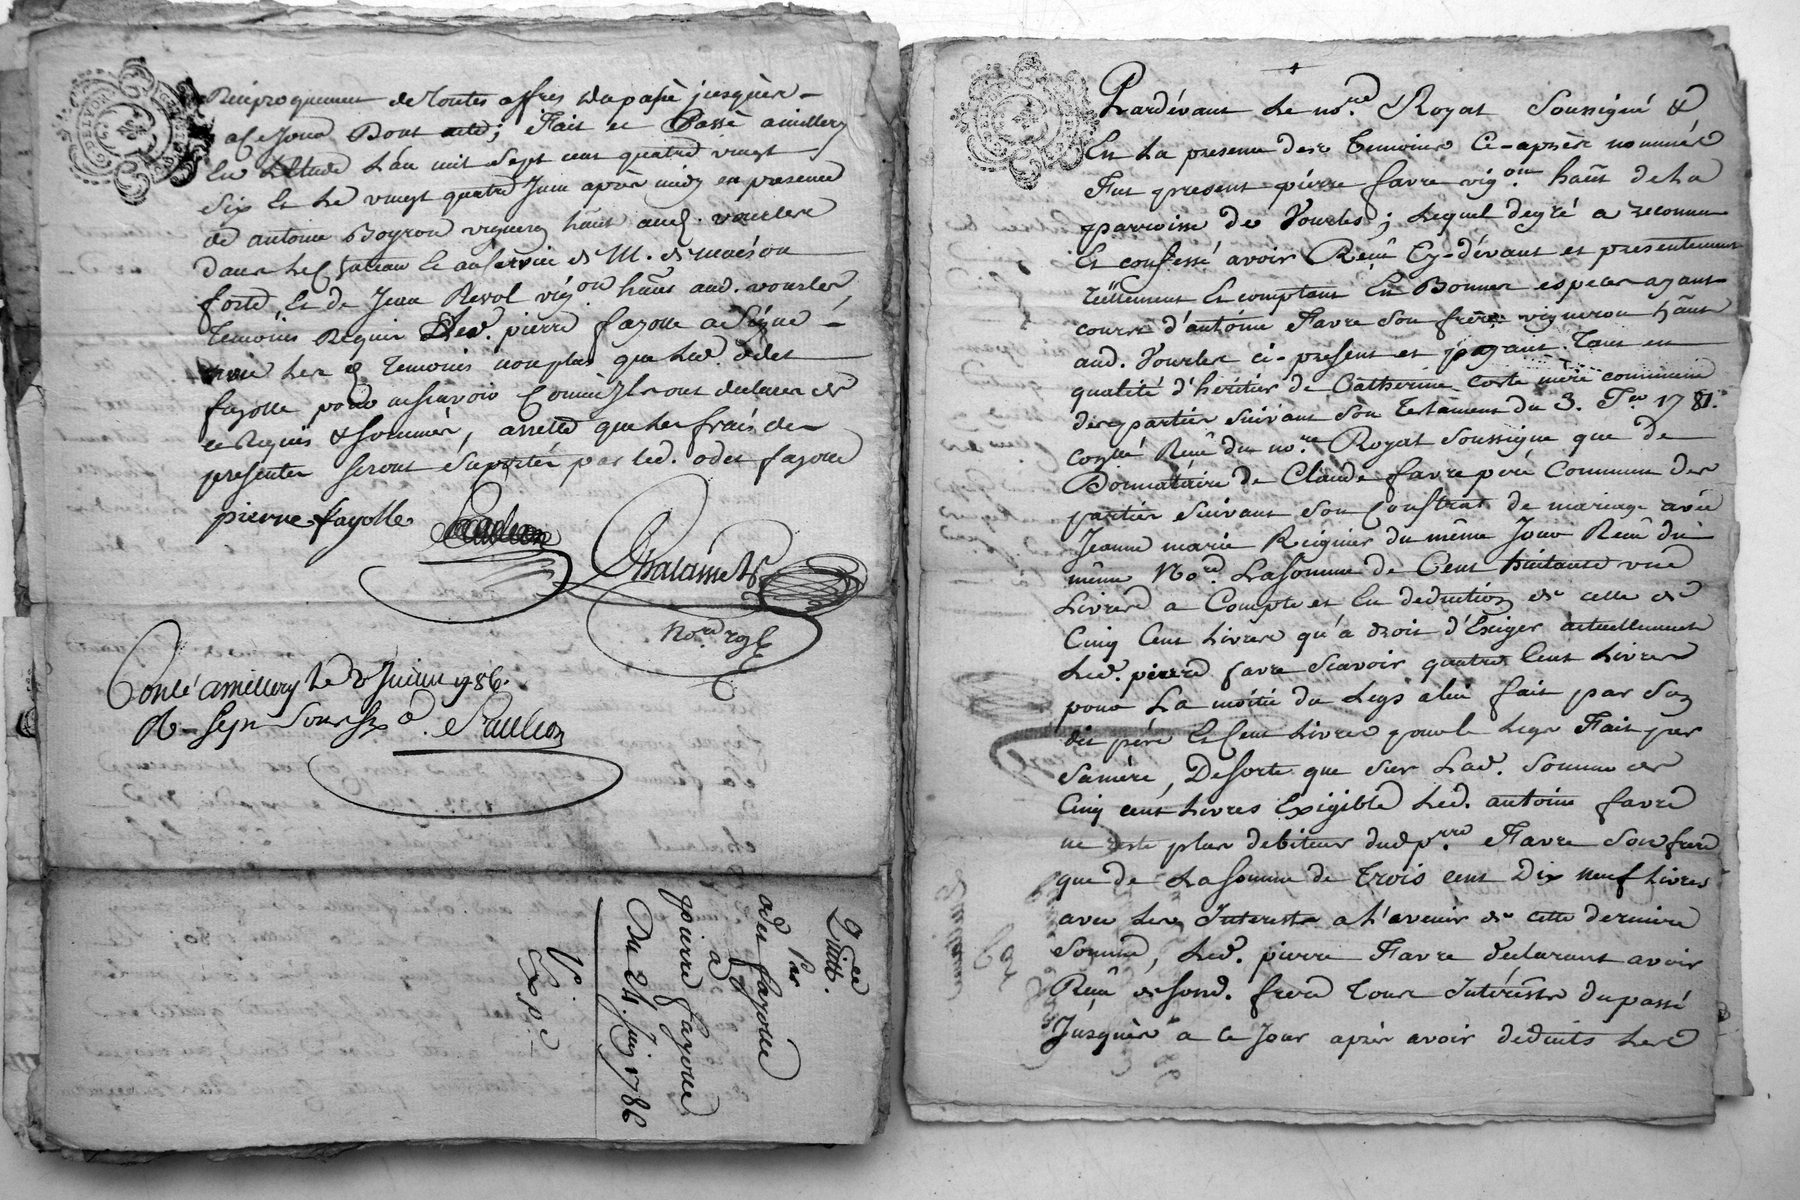 Reciproquement de toutes affres du passé jusques
a ce Jour Dont acte; Fait et Passé a millery
En Letude L'an mil sept cent quatre vingt
Six Et Le vingt quatre Juin après midy en presence
de antoine Boyron vigneron hānt aud. vourles
dans Le Chateau Et au service de M. de maison
forte, Et de Jean Revol vigon hānt aud. vourles
Temoins Requis Led. pierre fayolle a Signé
non Les Temoins non plus que Led. odet
fayolle pour ne scavoir Comm'Ils ont declaré de
ce Requis & sommés, arrette que Les frais des
presentes seront suportés par led. odet fayolle
pierre fayolle
Chalamel
Nore royl
Conlé a millery le Juillet 1786.
R. sept sous six d.
Quittce
Par
odet fayolle
a
pierre fayolle
Du 24. Juin 1786
Pardevant Le nore. Royal Soussigné &
En La presence des Temoins Ci-après nommés
Fut present pierre favre vigon hānt de La
parroisse de Vourles; Lequel de gré a reconnu
Et confessé avoir Reçû Cy-devant et presentement
réellement Et comptant En Bonnes especes ayant
cours d'antoine Favre Son frere vigneron hānt
aud. Vourles ci-present et payant. Tant en
qualité d'heritier de Catherine Coste mère commune
des parties suivant son Testament du 3. Jer 1781.
Reçû du nore Royal soussigné que de
Donnataire de Claude favre pere Commun des
parties suivant son Contrat de mariage avec
Jeanne marie Reignier du même Jour Reçû du
même Nore. La somme de Cent huitante une
Livres a Compte et En deduction de celle de
Cinq Cent Livres qu'a droit d'Exiger actuellement
Led. pierre favre Scavoir quatre Cent Livres
pour La moitié du Legs a lui fait par Son
dit père Et Cent Livres pour le Legs Fait par
Sa mère, De sorte que Sur Lad. Somme de
Cinq cent Livres Exigible Led. antoine favre
ne reste plus debiteur dud. prre. Favre Son frere
que de La somme de Trois cent Dix neuf Livres
avec Les Interets a L'avenir de cette derniere
Somme, Led. pierre Favre déclarant avoir
Reçû de sond. frere Tous Intérêts du passé
Jusques a ce Jour après avoir deduits Les